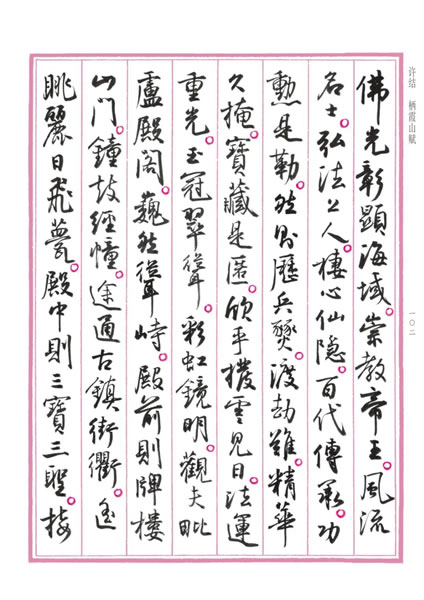 许结 栖霞山赋
一〇二
佛光彰顯海域。崇教帝王。風流
名士。弘法上人棲心仙隐。百代傳承。功
勳是勒。然則歷兵燹。渡劫難。精華
久掩。寶藏是匿。欣乎撥雲見日。法運
重光。玉冠翠聳。彩虹鏡明。觀夫毗
盧殿閣。巍然聳峙。殿前則牌樓
山門。鐘鼓經幢。途通古鎮街衢。遙
眺麗日飛甍。殿中則三寶三聖。接